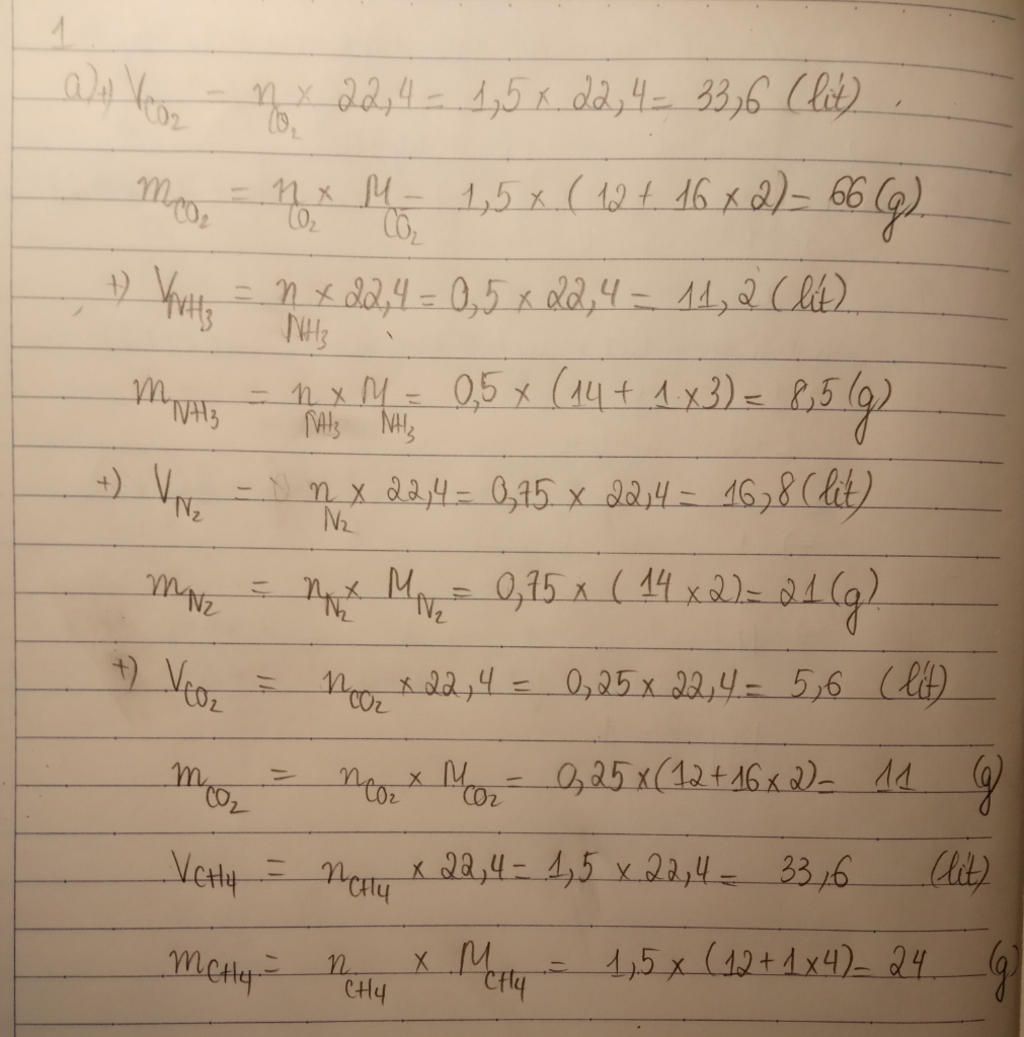 1
a) +) V_CO₂ = n_CO₂ × 22,4 = 1,5 × 22,4 = 33,6 (lít).
m_CO₂ = n_CO₂ × M_CO₂ = 1,5 × (12 + 16 × 2) = 66 (g)
+) V_NH₃ = n_NH₃ × 22,4 = 0,5 × 22,4 = 11,2 (lít)
m_NH₃ = n_NH₃ × M_NH₃ = 0,5 × (14 + 1 × 3) = 8,5 (g)
+) V_N₂ = n_N₂ × 22,4 = 0,75 × 22,4 = 16,8 (lít)
m_N₂ = n_N₂ × M_N₂ = 0,75 × (14 × 2) = 21 (g)
+) V_CO₂ = n_CO₂ × 22,4 = 0,25 × 22,4 = 5,6 (lít)
m_CO₂ = n_CO₂ × M_CO₂ = 0,25 × (12 + 16 × 2) = 11 (g)
V_CH₄ = n_CH₄ × 22,4 = 1,5 × 22,4 = 33,6 (lít)
m_CH₄ = n_CH₄ × M_CH₄ = 1,5 × (12 + 1 × 4) = 24 (g)